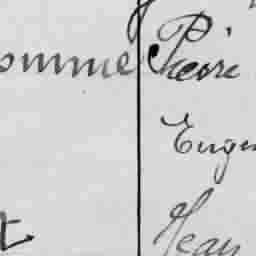 omme Pierre
Eugen
Jean
t